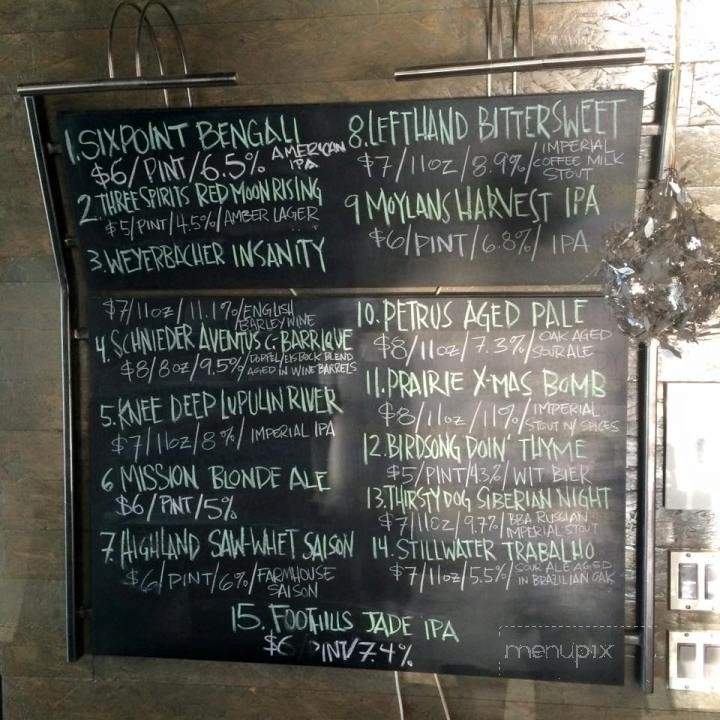 1. SIXPOINT BENGALI
$6/PINT/6.5% AMERICAN
IPA
2. THREE SPIRITS RED MOON RISING
$5/PINT/4.5%/AMBER LAGER
3. WEYERBACHER INSANITY
$7/11oz/11.1%/ENGLISH
BARLEY WINE
4. SCHNIEDER AVENTUS C-BARRIQUE
$8/8oz/9.5%/DOPPEL/EISBOCK BLEND
AGED IN WINE BARRELS
5. KNEE DEEP LUPULIN RIVER
$7/11oz/8%/IMPERIAL IPA
6 MISSION BLONDE ALE
$6/PINT/5%
7. HIGHLAND SAW-WHET SAISON
$6/PINT/6%/FARMHOUSE
SAISON
8. LEFTHAND BITTERSWEET
$7/11oz/8.9%/IMPERIAL
COFFEE MILK
STOUT
9 MOYLANS HARVEST IPA
$6/PINT/6.8%/IPA
10. PETRUS AGED PALE
$8/11oz/7.3%/OAK AGED
SOUR ALE
11. PRAIRIE X-MAS BOMB
$8/11oz/11%/IMPERIAL
STOUT W/ SPICES
12. BIRDSONG DOIN' THYME
$5/PINT/4.3%/WIT BIER
13. THIRSTY DOG SIBERIAN NIGHT
$7/11oz/9.7%/BBA RUSSIAN
IMPERIAL STOUT
14. STILLWATER TRABALHO
$7/11oz/5.5%/SOUR ALE AGED
IN BRAZILIAN OAK
15. FOOTHILLS JADE IPA
$6 PINT/7.4%
menupix